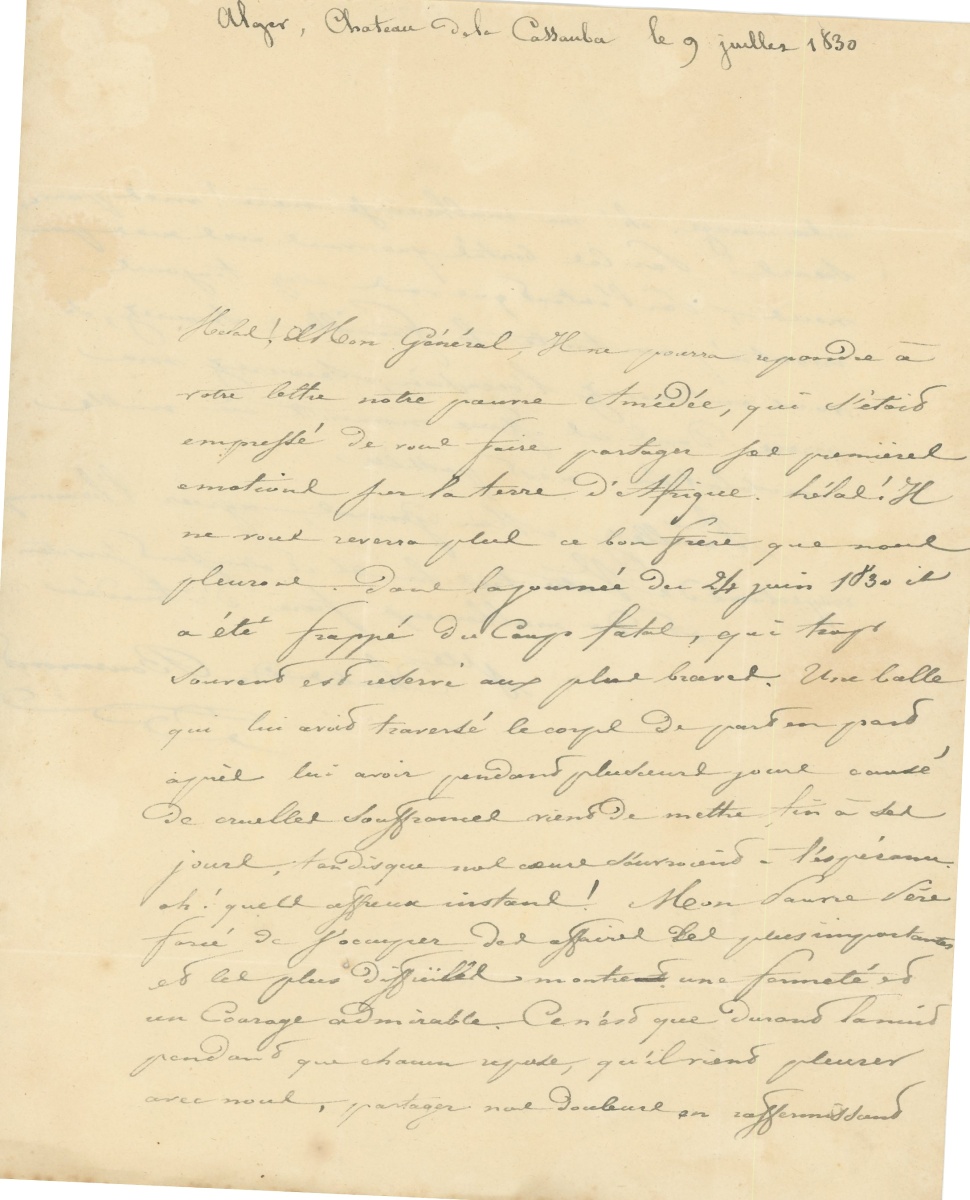 Alger, Chateau de la Cassauba le 9 juillet 1830
Helas! Mon Général, Il ne pourra repondre à
votre lettre notre pauvre Amédée, qui s'étoit
empressé de vous faire partager ses premières
emotions sur la terre d'Afrique. hélas! Il
ne vous reverra plus ce bon frère que nous
pleurons. Dans la journée du 24 juin 1830 il
a été frappé du Coup fatal, qui trop
souvent est reservé aux plus braves. Une balle
qui lui avoit traversé le corps de part en part
après lui avoir pendant plusieurs jours causé
de cruelles souffrances vient de mettre fin à ses
jours, tandis que nos cœurs s'ouvroient à l'éspérance.
oh! quels affreux instans! Mon Pauvre Père
forcé de s'occuper des affaires les plus importantes
et les plus difficiles montre une fermeté et
un Courage admirable. Ce n'est que durant la nuit
pendant que chacun repose, qu'il vient pleurer
avec nous, partager nos douleurs en raffermissant